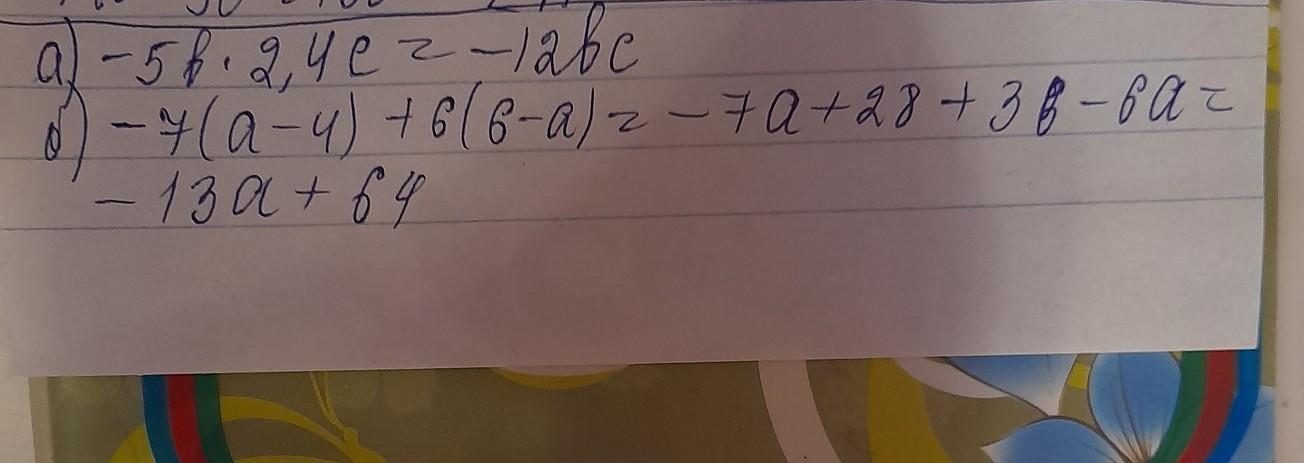 а) -5b · 2,4c = -12bc
б) -7(a-4) + 6(6-a) = -7a + 28 + 36 - 6a =
- 13a + 64